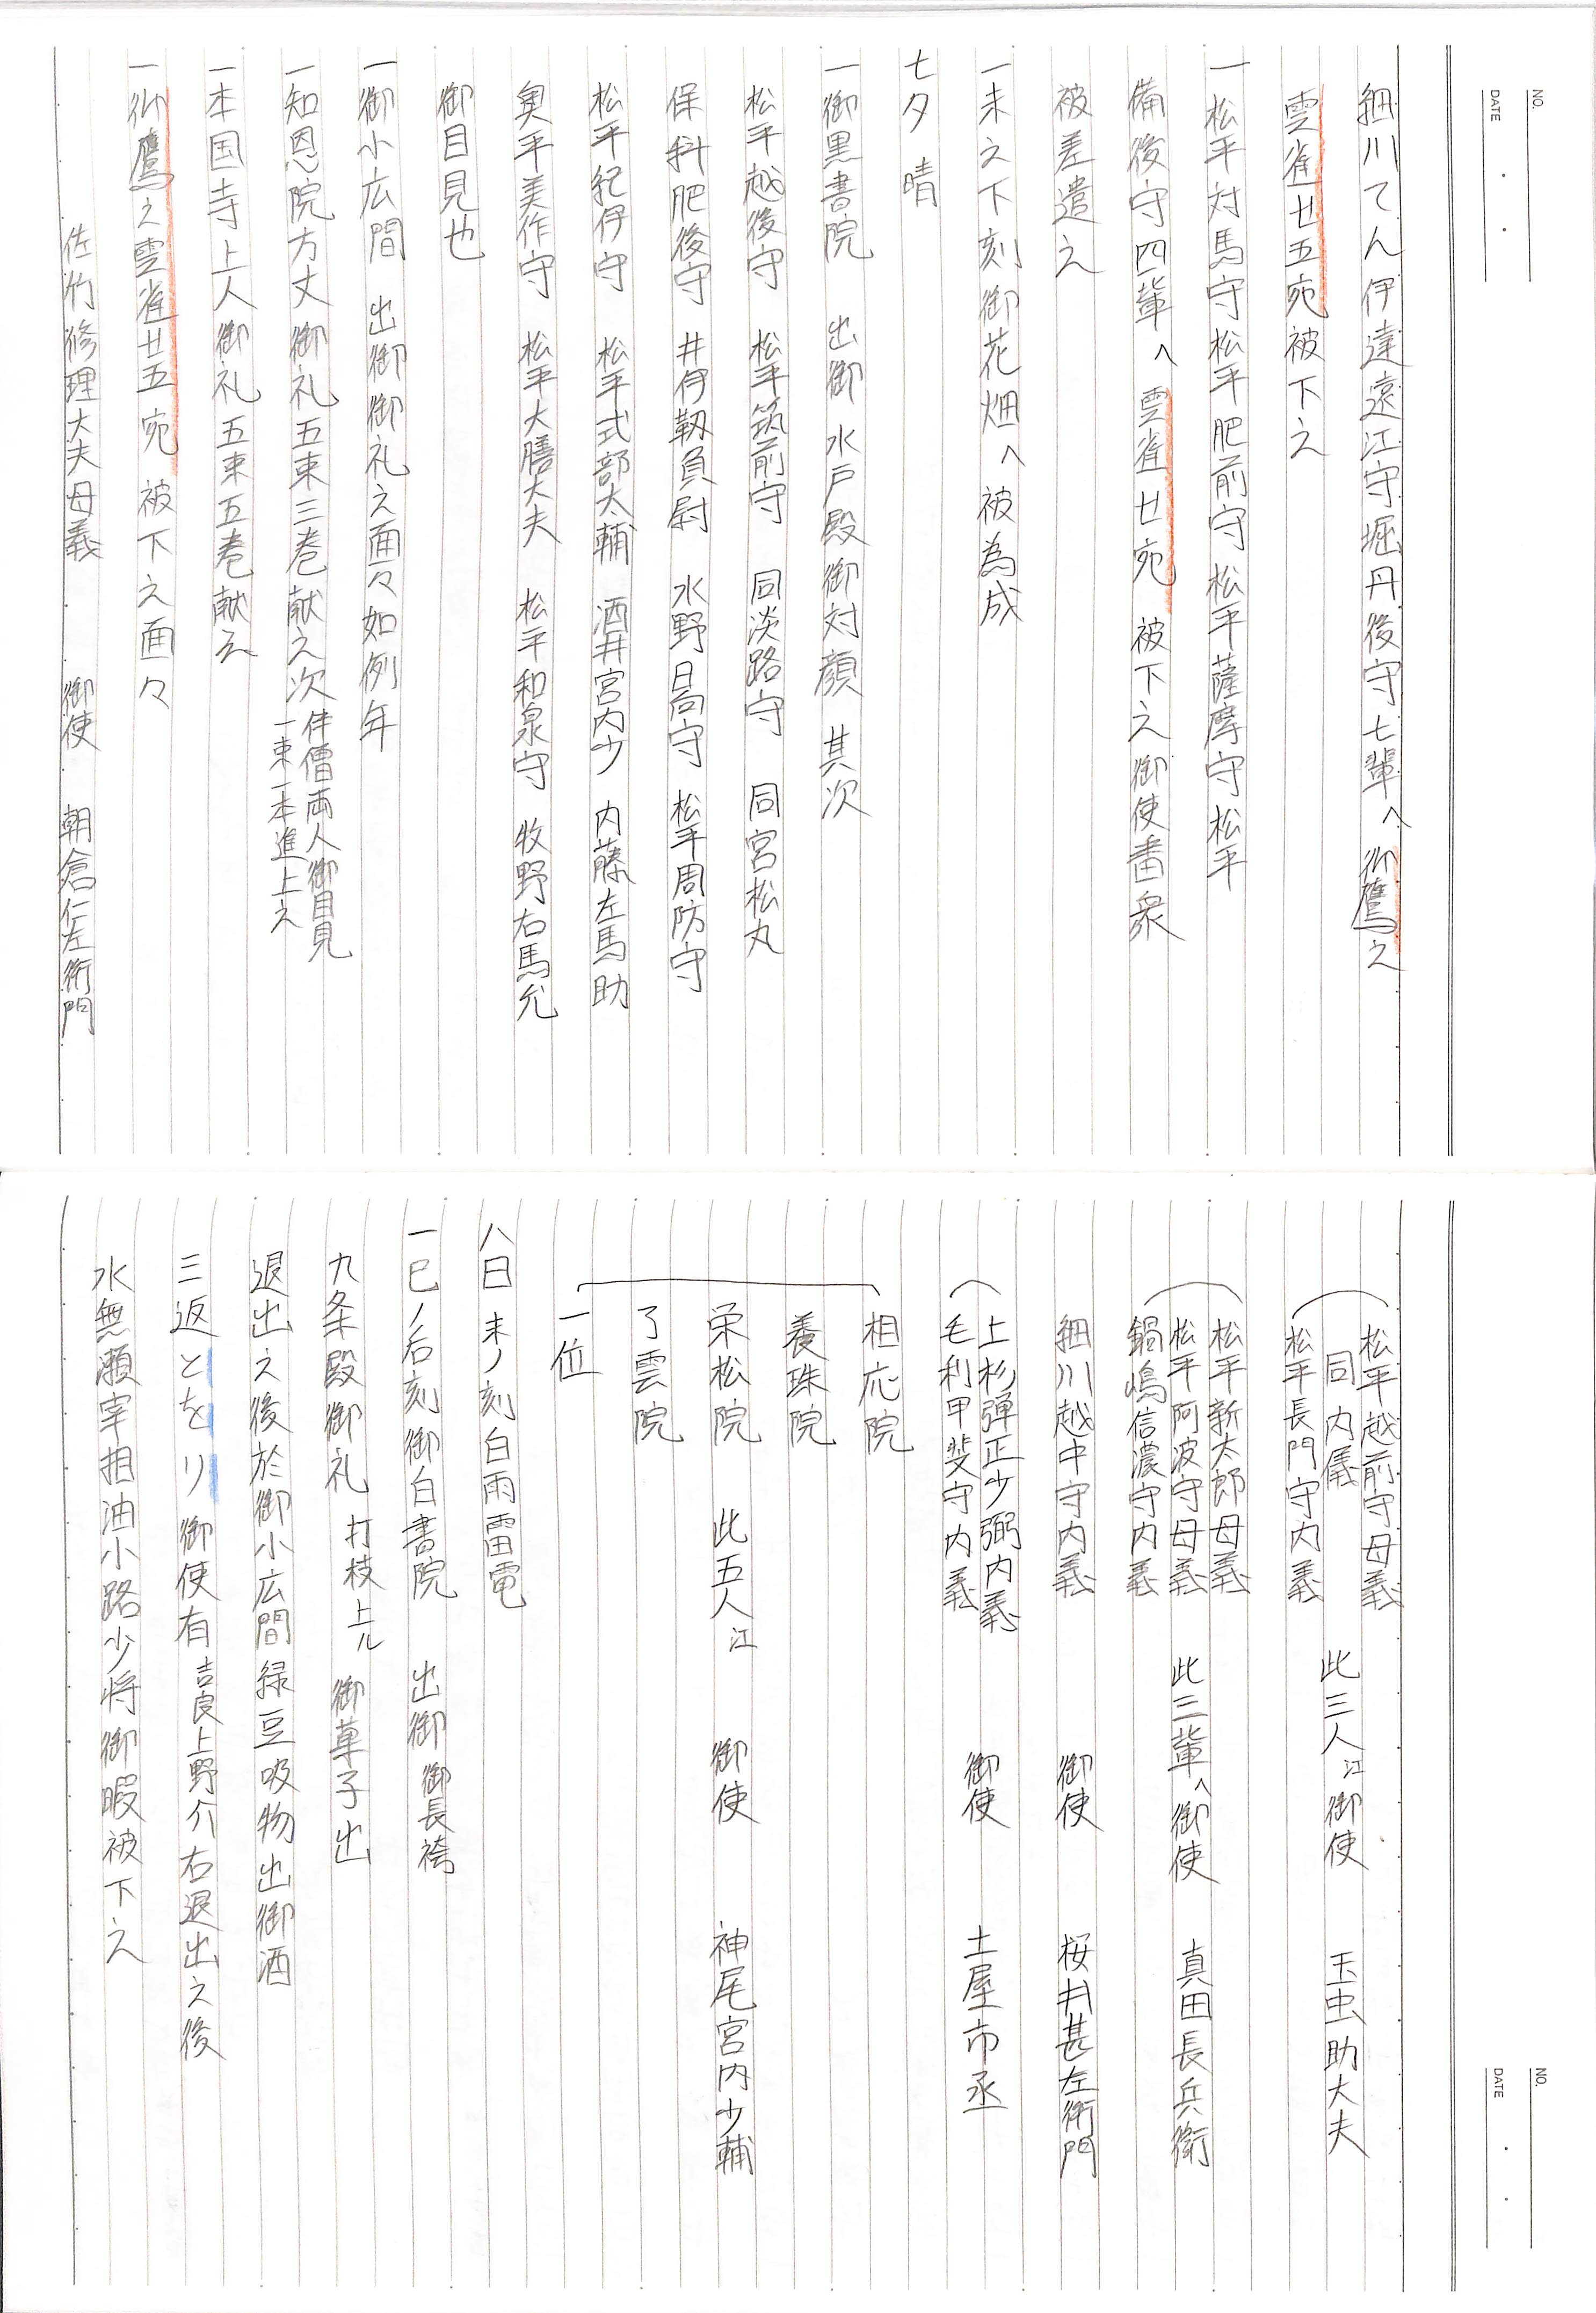 NO.
DATE
細川てん伊達遠江守堀丹後守七輩へ御鷹之
雲雀廿五宛被下之
一松平対馬守松平肥前守松平薩摩守松平
備後守四輩へ雲雀廿宛被下之御使番衆
被差遣之
一未之下刻御花畑へ被為成
七夕 晴
一御黒書院 出御 水戸殿御対顔 其次
松平越後守 松平筑前守 同淡路守 同宮松丸
保科肥後守 井伊靱負尉 水野日向守 松平周防守
松平紀伊守 松平式部太輔 酒井宮内少 内藤左馬助
奥平美作守 松平大膳大夫 松平和泉守 牧野右馬允
御目見也
一御小広間 出御御礼之面々如例年
一知恩院方丈御礼五束三巻献之次伴僧両人御目見
一束一本進上之
一本国寺上人御礼五束五巻献之
一御鷹之雲雀廿五宛 被下之面々
佐竹修理大夫母義 御使 朝倉仁左衛門
NO.
DATE
松平越前守母義
同 内儀 此三人江御使 玉虫助大夫
松平長門守内義
松平新太郎母義
松平阿波守母義 此三輩へ御使 真田長兵衛
鍋嶋信濃守内義
細川越中守内義 御使 桜井甚左衛門
上杉弾正少弼内義
毛利甲斐守内義 御使 土屋市丞
相応院
養珠院
栄松院 此五人江 御使 神尾宮内少輔
了雲院
一位
八日 未ノ刻白雨雷電
一巳ノ后刻御白書院 出御 御長袴
九条殿御礼 打枝上ル 御菓子出
退出之後於御小広間緑豆吸物出御酒
三返とをり御使有吉良上野介右退出之後
水無瀬宰相油小路少将御暇被下之